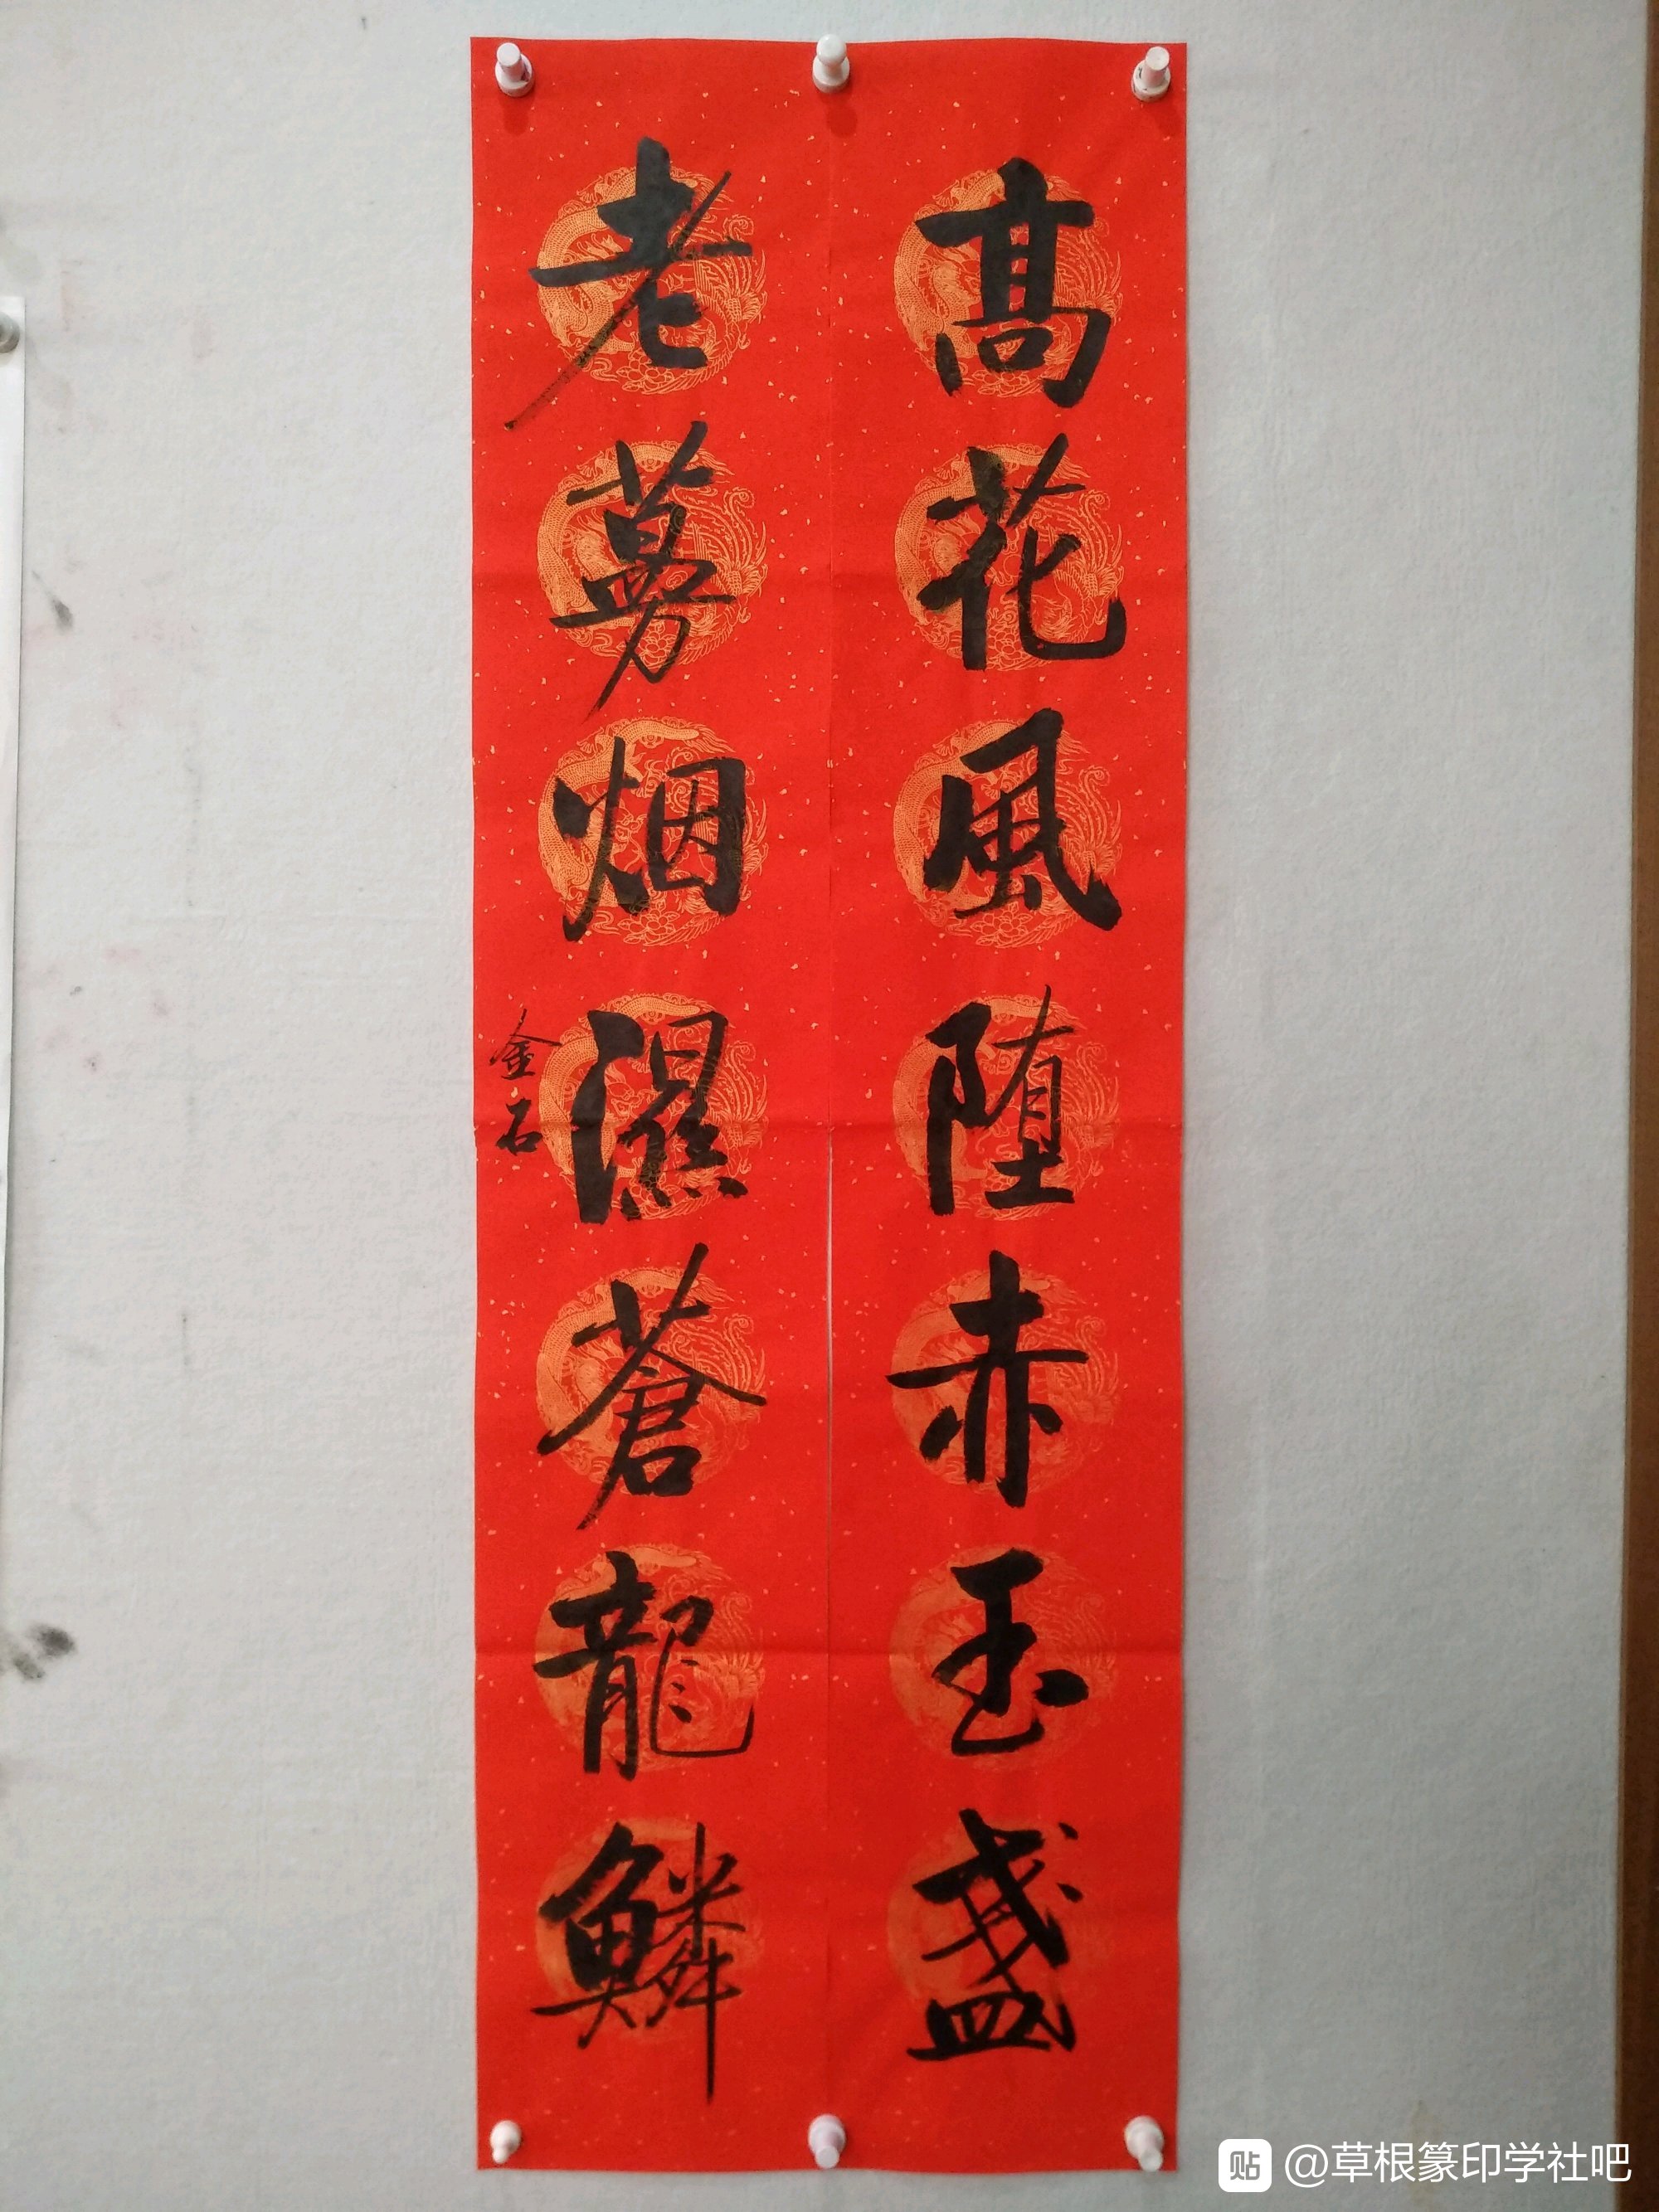 高花風堕赤玉盞
老蔓烟濕蒼龍鱗
金石
贴 @草根篆印学社吧